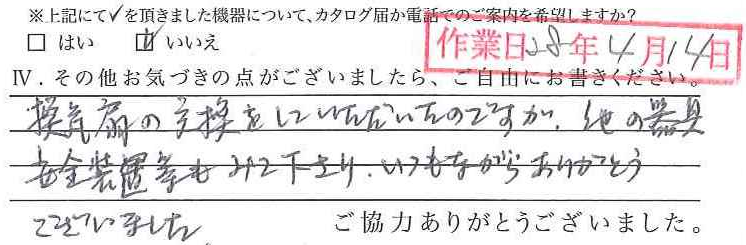 ※上記にて✓を頂きました機器について、カタログ届か電話でのご案内を希望しますか?
□ はい ☑ いいえ
作業日 28年4月14日
Ⅳ．その他お気づきの点がございましたら、ご自由にお書きください。
換気扇の交換をしていただいたのですが、他の器具
安全装置等もみて下さり、いつもながらありがとう
ございました
ご協力ありがとうございました。